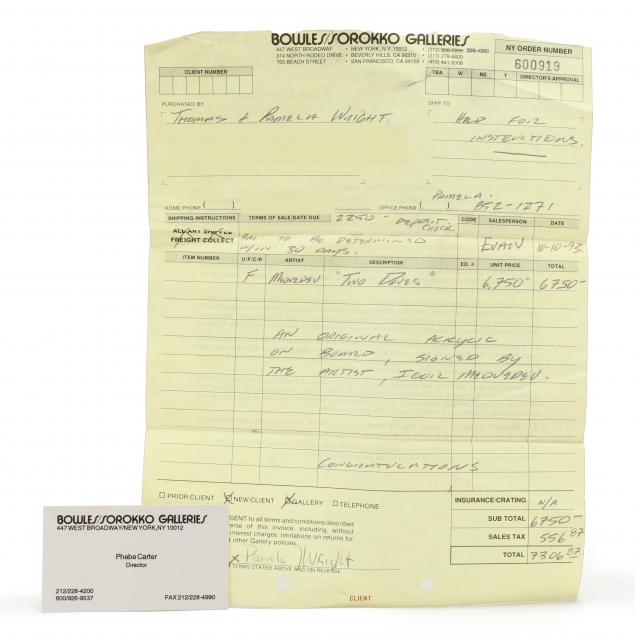 BOWLES/SOROKKO GALLERIES
447 WEST BROADWAY • NEW YORK, N.Y. 10012 • (212) 226-7200 228-4990
314 NORTH RODEO DRIVE • BEVERLY HILLS, CA 90210
765 BEACH STREET • SAN FRANCISCO, CA 94109
NY ORDER NUMBER
600919
TBA W NS T DIRECTOR'S APPROVAL
CLIENT NUMBER
PURCHASED BY
THOMAS & PAMELA WRIGHT
SHIP TO
HOLD FOR
INSTRUCTIONS.
PAMELA.
HOME PHONE ( )
OFFICE PHONE ( ) 852-1271
SHIPPING INSTRUCTIONS
ALL ART SHIPPED
FREIGHT COLLECT
TERMS OF SALE/DATE DUE
2250- DEPOSIT
CHECK.
BAL TO BE DETERMINED
W/IN 30 DAYS.
CODE SALESPERSON DATE
EVAN 10-10-93
ITEM NUMBER U/F/C-R ARTIST DESCRIPTION ED. # UNIT PRICE TOTAL
F MEDVEDEV "TWO DOVES" 6,750- 6750-
AN ORIGINAL ACRYLIC
ON BOARD, SIGNED BY
THE ARTIST, IGOR MEDVEDEV.
CONGRATULATIONS
PRIOR CLIENT NEW CLIENT GALLERY TELEPHONE
INSURANCE/CRATING N/A
SUB TOTAL 6750-
SALES TAX 556 87
TOTAL 7306 87
ONSENT to all terms and conditions described
verse of this invoice, including, without
interest charges, limitations on returns for
d other Gallery policies.
x Pamela Wright
TERMS STATED ABOVE AND ON REVERSE
CLIENT
BOWLES/SOROKKO GALLERIES
447 WEST BROADWAY/NEW YORK, NY 10012
Phebe Carter
Director
212/228-4200
800/926-9537
FAX 212/228-4990